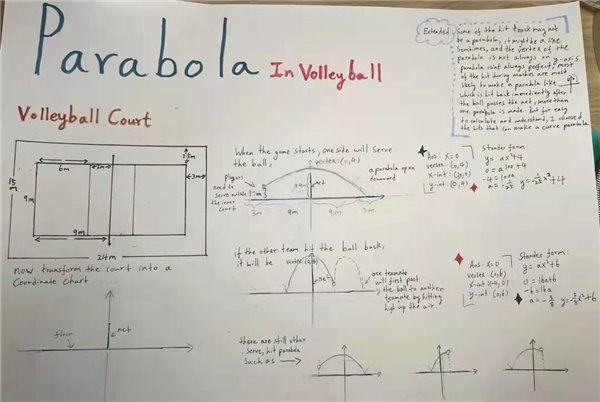 Parabola In Volleyball
Extended:
Some of the hit track may not
be a parabola, it might be a line.
Somtimes, and the vertex of the
parabola is not always on y-axis
parabola isn't always perfect, most
of the hit during matches are most
likely to make a parabola like
which is hit back immediently after
the ball passes the net, more than
one parabola is made. but for easy
to calculate and understand, I choosed
the hits that can make a curve parabola.
Volleyball Court
6m
3m
3.5m
3m
15m
9m
9m
24m
now transform the court into a
Coordinate chart
floor
net
When the game starts, one side will serve
the ball,
vertex: (0,4)
a parabola open
downward
players
need to
serve outside
the inner
court
net
3m
9m
9m
3m
Aos: x=0
vertex: (0,4)
x-int:
y-int: (0,4)
Standar form:
y = ax²+4
0 = a100+4
-4 = 100a
a = -1/25
y = -1/25 x²+4
if the other team hit the ball back,
it will be
vertex: (0,6)
net
one teamate
will first past
the ball to another
teamate by hitting
high up the air.
Aos: x=0
vertex: (0,6)
x-int: (-4,0)
y-int: (0,6)
Standar form:
y = ax²+6
0 = 16a+6
-6 = 16a
a = -3/8
y = -3/8 x²+6
there are still other
serve, hit parabola
such as